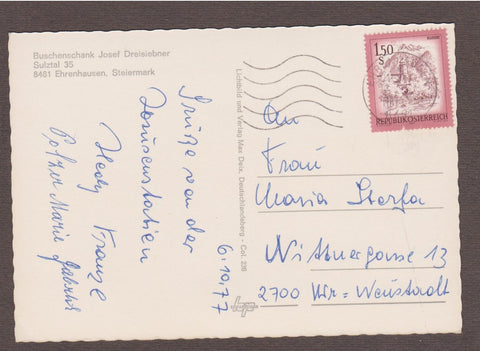 Buschenschank Josef Dreisiebner
Sulztal 35
8461 Ehrenhausen, Steiermark
6.10.77
Grüße von der
Hedy Franzl
Potzer Marie
Lichtbild und Verlag Max Deix, Deutschlandsberg - Col. 226
1.50
S
REPUBLIK ÖSTERREICH
An
Frau
Maria Sterfa
Wittnergasse 13
2700 Wr = Neustadt